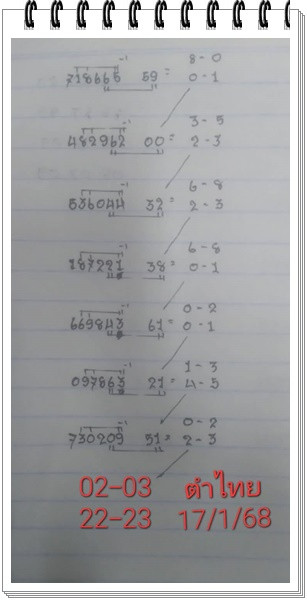 8 - 0
718665 -1 59 = 0 - 1
3 - 5
482962 -1 00 = 2 - 3
6 - 8
536044 -1 32 = 2 - 3
6 - 8
787221 -1 38 = 0 - 1
0 - 2
669843 -1 61 = 0 - 1
1 - 3
097863 -1 21 = 4 - 5
0 - 2
730209 -1 51 = 2 - 3
02-03 ตำไทย
22-23 17/1/68